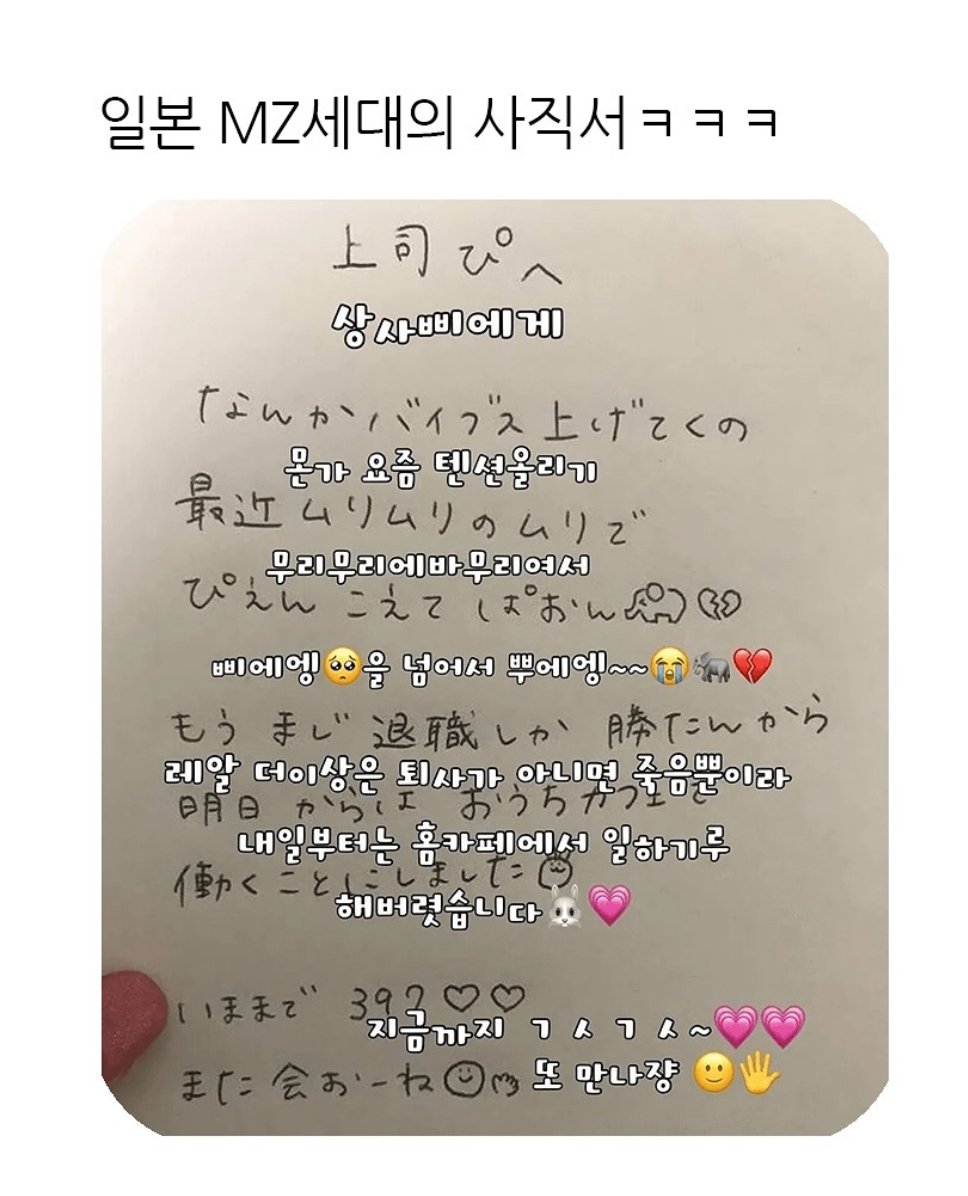 일본 MZ세대의 사직서ㅋㅋㅋ
上司ぴへ
상사삐에게
なんかバイブス上げてくの
몬가 요즘 텐션올리기
最近ムリムリのムリで
무리무리에바무리여서
ぴえん こえて ぱおん
삐에엥🥺을 넘어서 뿌에엥~~😭🐘💔
もう まじ 退職しか 勝たんから
레알 더이상은 퇴사가 아니면 죽음뿐이라
明日 からは おうちカフェで
내일부터는 홈카페에서 일하기루
働くことにしました
해버렷습니다🐰💗
いままで 39?♡♡
지금까지 ㄱㅅㄱㅅ~💗💗
また会おーね
또 만나쟝 🙂🖐